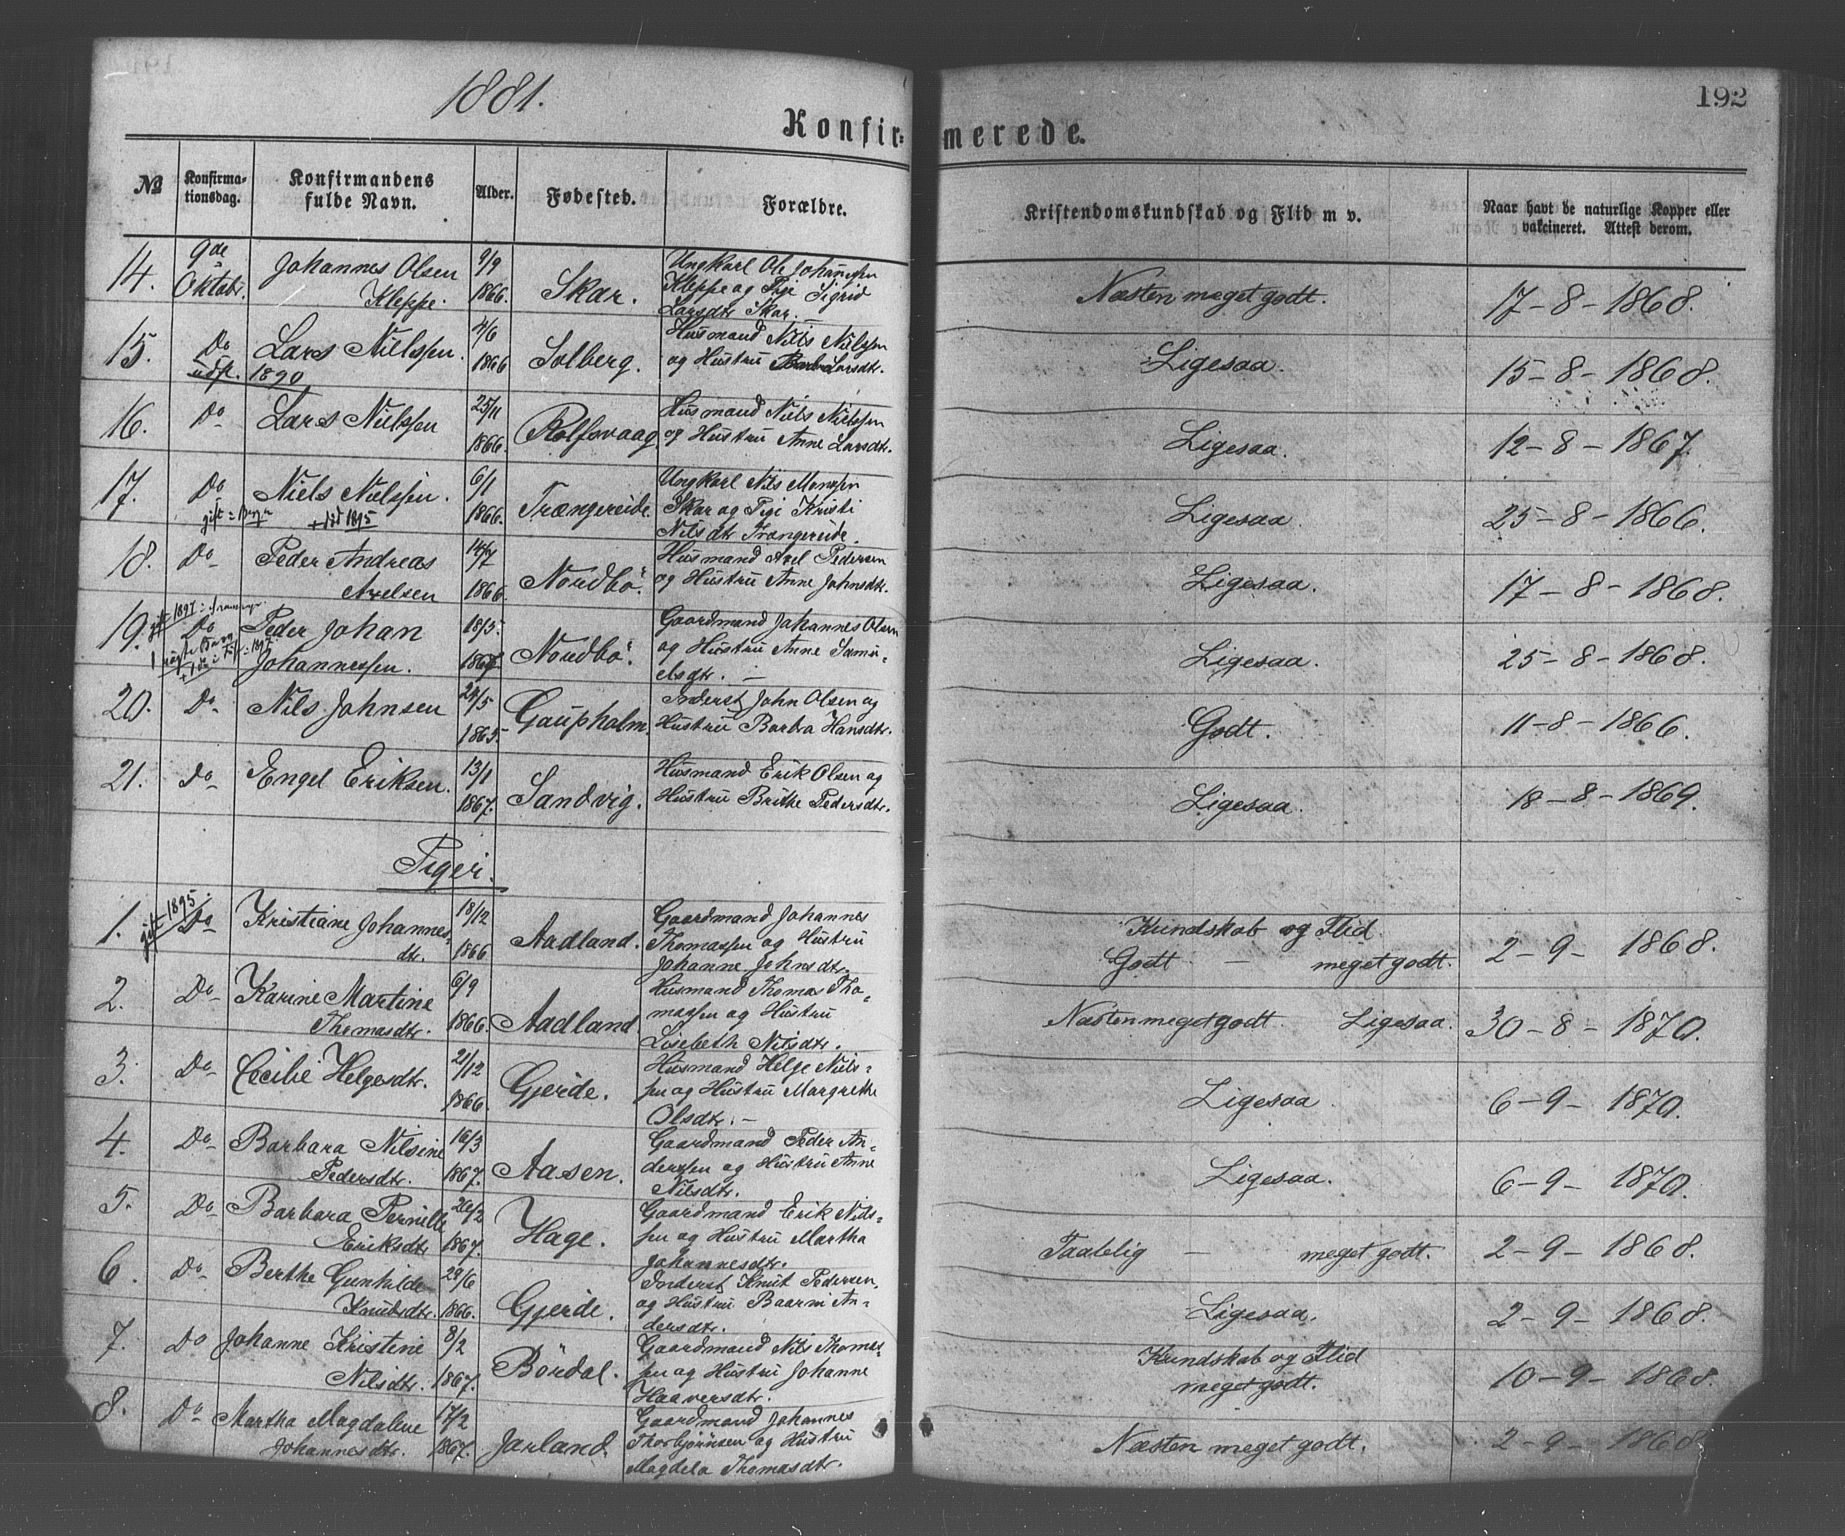 1881.
192
Konfir- merede.
№ Konfirma-tionsdag. Konfirmandens fulde Navn. Alder. Fødested. Forældre. Kristendomskundskab og Flid m v. Naar havt de naturlige Kopper eller vakcineret. Attest derom.
14. 9de Oktobr. Johannes Olsen 9/9 Skar. Ungkarl Ole Johannsen Næsten meget godt. 17-8-1868.
Kleppe. 1866. Kleppe og Pige Sigrid
Larsdtr Skar.
15. Do Lars Nielssen. 4/6 Solberg. Husmand Nils Nielsen Ligesaa. 15-8-1868.
udfl. 1890 1866 og Hustru Larsdtr.
16. Do Lars Nielssen 25/11 Rolfsvaag Husmand Niels Nielssen Ligesaa. 12-8-1867.
1866. og Hustru Anne Larsdtr.
17. Do Niels Nielssen. 6/1 Trængereide. Ungkarl Nils Monssen Ligesaa. 25-8-1866.
gift 1895 1866. Skar og Pige Kristi
Nilsdt Trængereide.
18. Do Peder Andreas 14/7 Nordbö. Husmand Axel Pedersen Ligesaa. 17-8-1868.
Axelsen 1866. og Hustru Anne Johnsdtr.
gift 1897
19. Do Peder Johan 18/5. Nordbö. Gaardmand Johannes Olsen Ligesaa. 25-8-1868.
Johannessen. og Hustru Anne Samu-
elsdtr. —
20. Do Nils Johnsen Gaupholm. Inderst John Olsen og Godt. 11-8-1866.
1865. Hustru Barbra Hansdtr.
21. Do Engel Eriksen. 13/1 Sandvig. Husmand Erik Olsen og Ligesaa. 18-8-1869.
1867. Hustru Brithe Pedersdtr.
Piger.
gift 1895
1. Do Kristiane Johannes- 18/12 Aadland. Gaardmand Johannes Kundskab og Flid. 2-9-1868.
dtr. 1866 Thomassen og Hustru Godt — meget godt.
Johanne Johnsdtr.
2. Do Karine Martine 6/9 Aadland Husmand Thomas Tho- Næsten meget godt. Ligesaa. 30-8-1870.
Thomasdtr. 1866. massen og Hustru
Lisebeth Nilsdtr.
3. Do Cecilie Helgesdtr. 21/12 Gjerde. Husmand Helge Niels- Ligesaa 6-9-1870.
1866. sen og Hustru Margrethe
Olsdtr. —
4. Do Barbara Nilsine 16/3 Aasen. Gaardmand Peder An- Ligesaa. 6-9-1870.
Pedersdtr. 1867. derssen og Hustru Anne
Nilsdtr.
5. Do Barbara Pernille Hage. Gaardmand Erik Nils- Taalelig — meget godt. 2-9-1868.
Eriksdtr 1867. sen og Hustru Martha
Johannesdtr.
6. Do Berthe Gunhilde Gjerde. Inderst Knut Pedersen Ligesaa. 2-9-1868.
Knutsdtr. 1866. og Hustru Baarni An-
dersdtr.
7. Do Johanne Kristine 8/2 Bördal. Gaardmand Nils Thomas- Kundskab og Flid 10-9-1868.
Nilsdtr. 1867. sen og Hustru Johanne meget godt.
Haaversdtr.
8. Do Martha Magdalene 17/2 Jarland. Gaardmand Johannes Næsten meget godt. 2-9-1868
Johannesdtr. 1867. Thorbjörnsen og Hustru
Magdela Thomasdtr.